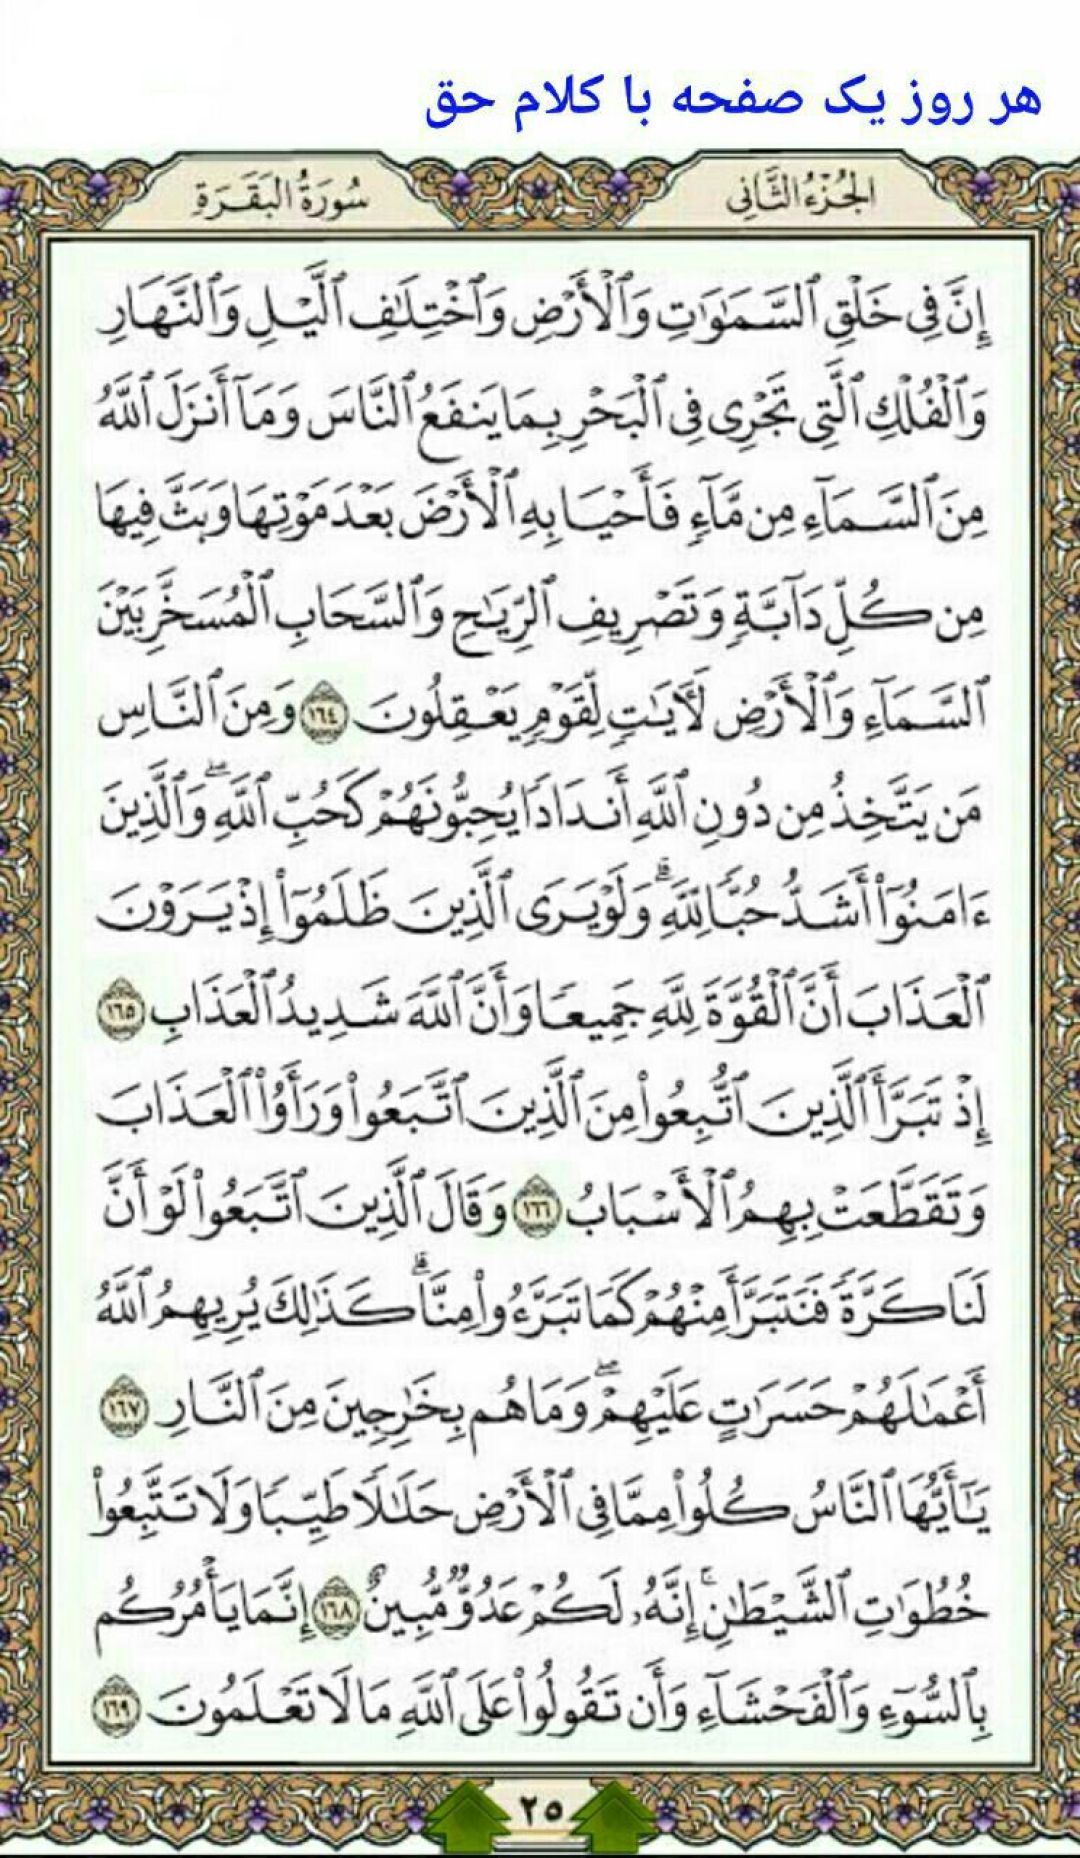 هر روز یک صفحه با کلام حق
الجُزْءُ الثَّانِي
سُورَةُ البَقَرَةِ
إِنَّ فِى خَلْقِ ٱلسَّمَـٰوَٰتِ وَٱلْأَرْضِ وَٱخْتِلَـٰفِ ٱلَّيْلِ وَٱلنَّهَارِ
وَٱلْفُلْكِ ٱلَّتِى تَجْرِى فِى ٱلْبَحْرِ بِمَا يَنفَعُ ٱلنَّاسَ وَمَآ أَنزَلَ ٱللَّهُ
مِنَ ٱلسَّمَآءِ مِن مَّآءٍ فَأَحْيَا بِهِ ٱلْأَرْضَ بَعْدَ مَوْتِهَا وَبَثَّ فِيهَا
مِن كُلِّ دَآبَّةٍ وَتَصْرِيفِ ٱلرِّيَـٰحِ وَٱلسَّحَابِ ٱلْمُسَخَّرِ بَيْنَ
ٱلسَّمَآءِ وَٱلْأَرْضِ لَـَٔايَـٰتٍ لِّقَوْمٍ يَعْقِلُونَ ١٦٤ وَمِنَ ٱلنَّاسِ
مَن يَتَّخِذُ مِن دُونِ ٱللَّهِ أَندَادًا يُحِبُّونَهُمْ كَحُبِّ ٱللَّهِ ۖ وَٱلَّذِينَ
ءَامَنُوٓا۟ أَشَدُّ حُبًّا لِّلَّهِ ۗ وَلَوْ يَرَى ٱلَّذِينَ ظَلَمُوٓا۟ إِذْ يَرَوْنَ
ٱلْعَذَابَ أَنَّ ٱلْقُوَّةَ لِلَّهِ جَمِيعًا وَأَنَّ ٱللَّهَ شَدِيدُ ٱلْعَذَابِ ١٦٥
إِذْ تَبَرَّأَ ٱلَّذِينَ ٱتُّبِعُوا۟ مِنَ ٱلَّذِينَ ٱتَّبَعُوا۟ وَرَأَوُا۟ ٱلْعَذَابَ
وَتَقَطَّعَتْ بِهِمُ ٱلْأَسْبَابُ ١٦٦ وَقَالَ ٱلَّذِينَ ٱتَّبَعُوا۟ لَوْ أَنَّ
لَنَا كَرَّةً فَنَتَبَرَّأَ مِنْهُمْ كَمَا تَبَرَّءُوا۟ مِنَّا ۗ كَذَٰلِكَ يُرِيهِمُ ٱللَّهُ
أَعْمَـٰلَهُمْ حَسَرَٰتٍ عَلَيْهِمْ ۖ وَمَا هُم بِخَـٰرِجِينَ مِنَ ٱلنَّارِ ١٦٧
يَـٰٓأَيُّهَا ٱلنَّاسُ كُلُوا۟ مِمَّا فِى ٱلْأَرْضِ حَلَـٰلًا طَيِّبًا وَلَا تَتَّبِعُوا۟
خُطُوَٰتِ ٱلشَّيْطَـٰنِ ۚ إِنَّهُۥ لَكُمْ عَدُوٌّ مُّبِينٌ ١٦٨ إِنَّمَا يَأْمُرُكُم
بِٱلسُّوٓءِ وَٱلْفَحْشَآءِ وَأَن تَقُولُوا۟ عَلَى ٱللَّهِ مَا لَا تَعْلَمُونَ ١٦٩
٢٥